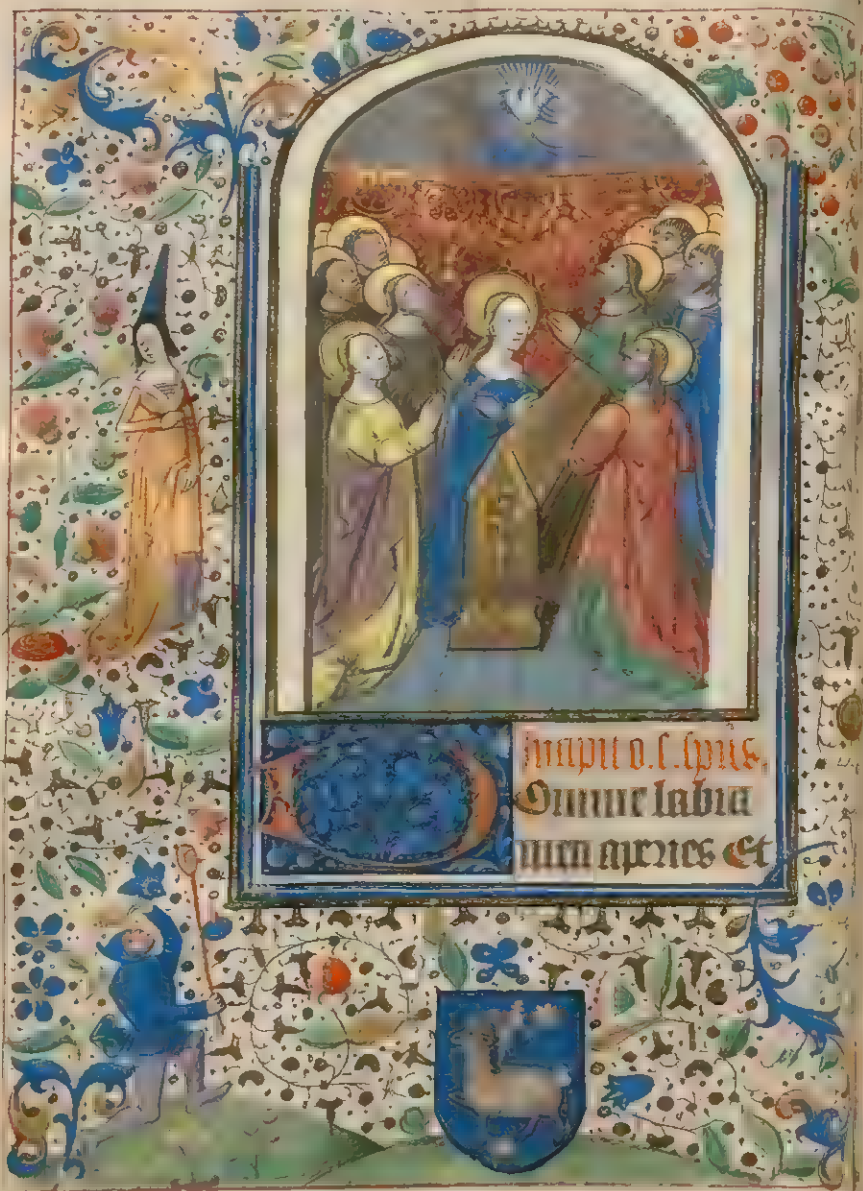 Incipit o. s. spus.
Domine labia
mea aperies Et